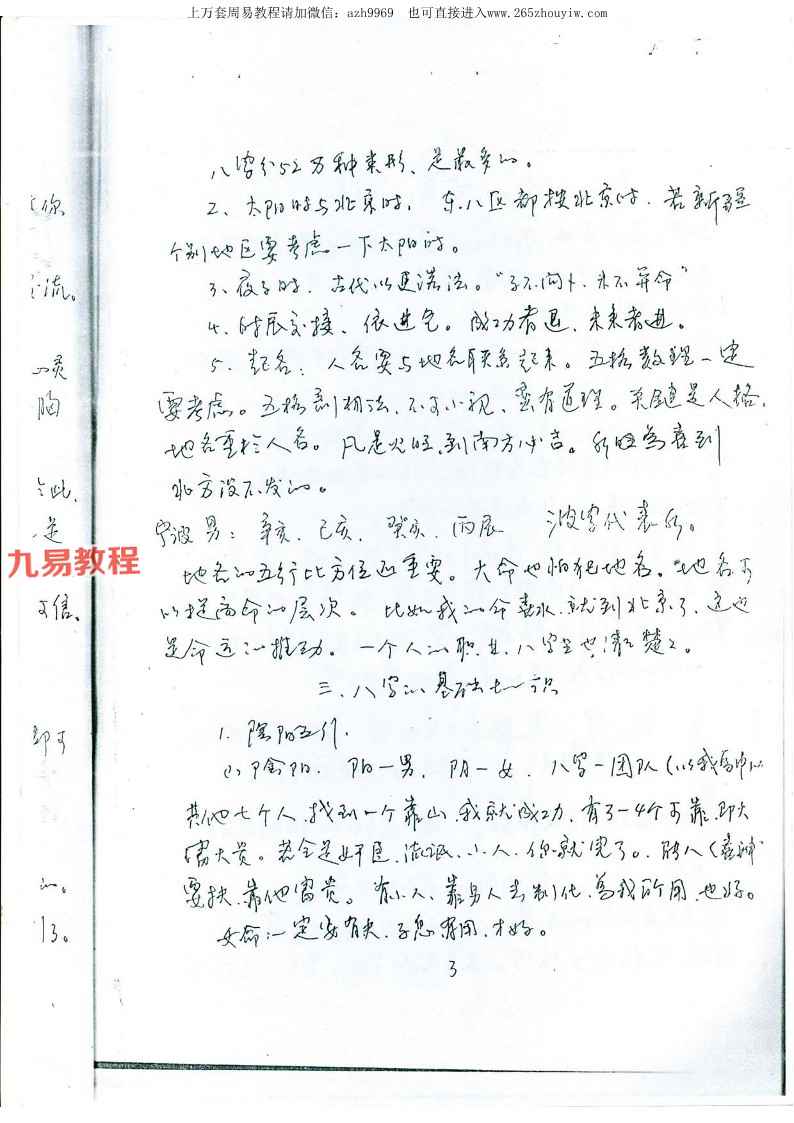 上万套周易教程请加微信：azh9969 也可直接进入www.265zhouyiw.com
八字分52万种来形、是最多的。
2、太阳时与北京时，东八区都按北京时，若新疆
个别地区要考虑一下太阳时。
3、夜子时，古代以更漏法。“子不问卜，未不算命”
4、时辰交接、依进气。成功者退，未来者进。
5、起名：人名要与地名联系起来。五格数理一定
要考虑。五格剖相法，不可小视，蛮有道理。关键是人格，
地名重于人名。凡是火旺，到南方必吉。到
北方没不发的。
宁波男：辛亥、己亥、癸亥、丙辰 波字代表
地名的五行比方位还重要。大命也怕犯地名。地名可
以提高命的层次。比如我的命喜水，就到北京了，这也
是命运的推动。一个人的职业，八字上也清清楚楚。
三、八字的基础知识
1. 阴阳五行.
(1)阴阳. 阳—男，阴—女，八字—团队（以我为中心
其他七个人，找到一个靠山，我就成功，有了一4个可靠，即大
富大贵。若全是奸臣、流氓、小人，你就完了。
要扶，靠他富贵。有小人、靠男人去制化，为我所用，也好。
女命：一定要有夫、子息有用，才好。
3
你
流。
灵
胸
此，
是
可信、
即可
的。
了。
九易教程